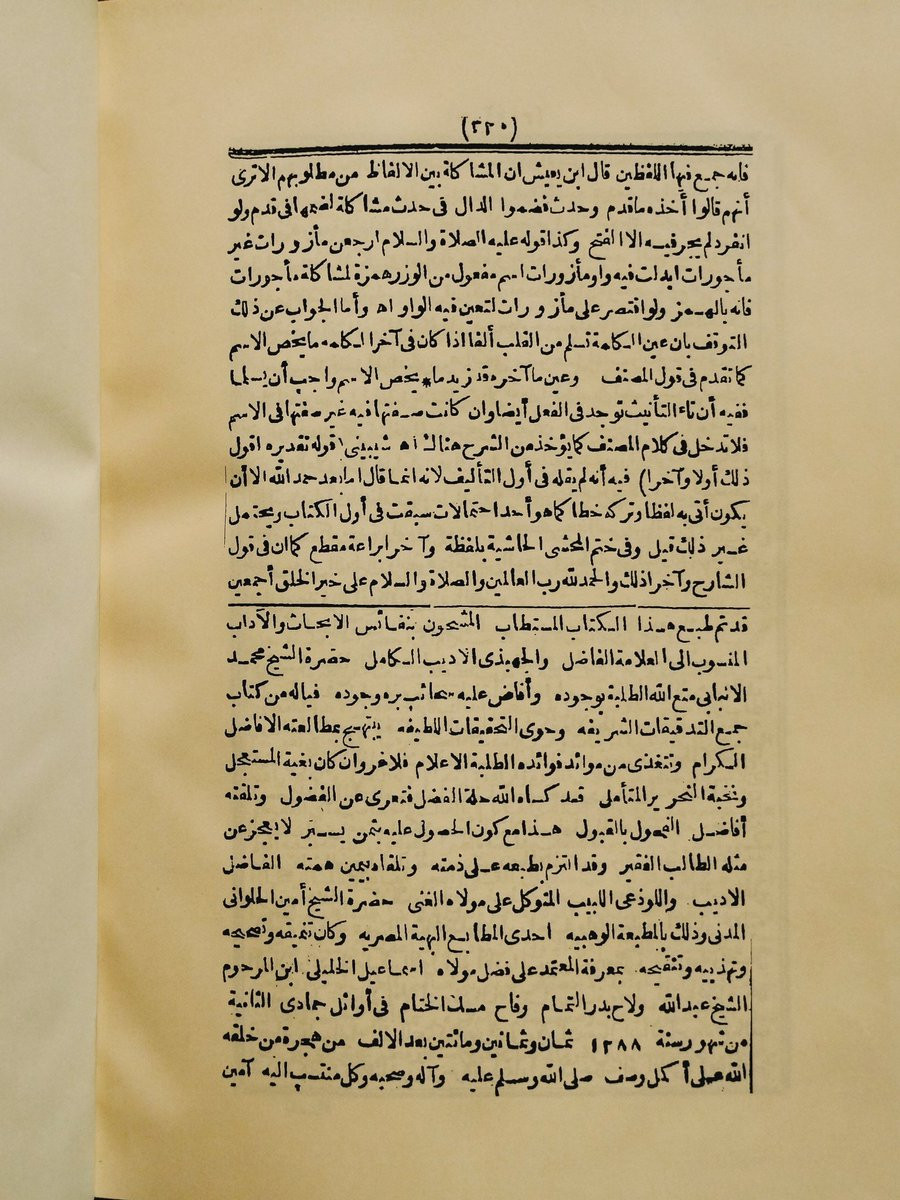 (٣٢٠)
فانه جمع فيها اللفظين قال ابن يعيش ان المشاكلة بين الالفاظ من مطلوبهم الا ترى
أنهم قالوا أخذه ما قدم وحدث فضموا الدال فى حدث مشاكلة لضمها فى قدم ولو
انفرد لم يجز فيه الا الفتح وكذا قوله عليه الصلاة والسلام ارجعن مأزورات غير
مأجورات ابدلت فيه واو مأزورات اسم مفعول من الوزر همزة لمشاكلة مأجورات
فانه بالهمز ولو اقتصر على مأزورات لتعين فيه الواو اه وأما الجواب عن ذلك
التوقف بان عين الكلمة تسلم من القلب ألفا اذا كان فى آخر الكلمه ما يخص الاسم
كما تقدم فى قول المصنف وعين ما آخره قد زيد ما * يخص الاسم واجب أن يسلما
ففيه أن تاء التأنيث توجد فى الفعل أيضا وان كانت صفتها فيه غير صفتها فى الاسم
فلا تدخل فى كلام المصنف كما يؤخذ من الشرح هنالك اه شيبينى (قوله تقديره اقول
ذلك أولا وآخرا) فيه أنه لم يقله فى أول التأليف لانه انما قال اما بعد حمد الله الا أن
يكون أتى به لفظا وتركه خطا كما هو أحد احتمالات سبقت فى أول الكتاب ويحتمل
غير ذلك قيل وفى ختم المحشى الحاشية بلفظة وآخرا براعة مقطع كما ان فى قول
الشارح وآخرا ذلك والحمد لله رب العالمين والصلاة والسلام على خير الخلق أجمعين
قد تم طبع هذا الكتاب المستطاب المشحون بنفائس الابحاث والآداب
المنسوب الى العلامة الفاضل والجهبذى الاديب الكامل حضرة الشيخ محمد
الانبابى متع الله الطلبة بوجوده وأفاض عليه سحائب بره وجوده فياله من كتاب
جمع التدقيقات الشريفه وحوى التحقيقات اللطيفه يبتهج بمطالعته الافاضل
الكرام وتتغذى من موائد فوائده الطلبة الاعلام فلا غرو ان كان بغية المستعجل
ونخبة النحرير المتأمل قد كساه الله حلة الفضل فتعرى عن الفضول وتلقته
أفاضل الفحول بالقبول هذا مع كون الحصول عليه بثمن يسير لا يعجز عن
مثله الطالب الفقير وقد التزم بطبعه على ذمته وتلقاه بيمين همته الفاضل
الاديب واللوذعى اللبيب المتوكل على مولاه الغنى حضرة الشيخ أمين الحلوانى
المدنى وذلك بالمطبعة الوهبيه احدى المطابع البهية المصريه وكان تنميقه وتصحيحه
وتهذيبه وتنقيحه بمعرفة المعتمد على فضل مولاه اسماعيل الخليلى ابن المرحوم
الشيخ عبد الله ولاح بدر التمام وفاح مسك الختام فى أوائل جمادى الثانية
من شهور سنة ١٢٨٨ ثمان وثمانين ومائتين بعد الالف من هجرة من خلقه
الله على أكمل وصف صلى الله وسلم عليه وآله وصحبه وكل منتسب اليه آمين